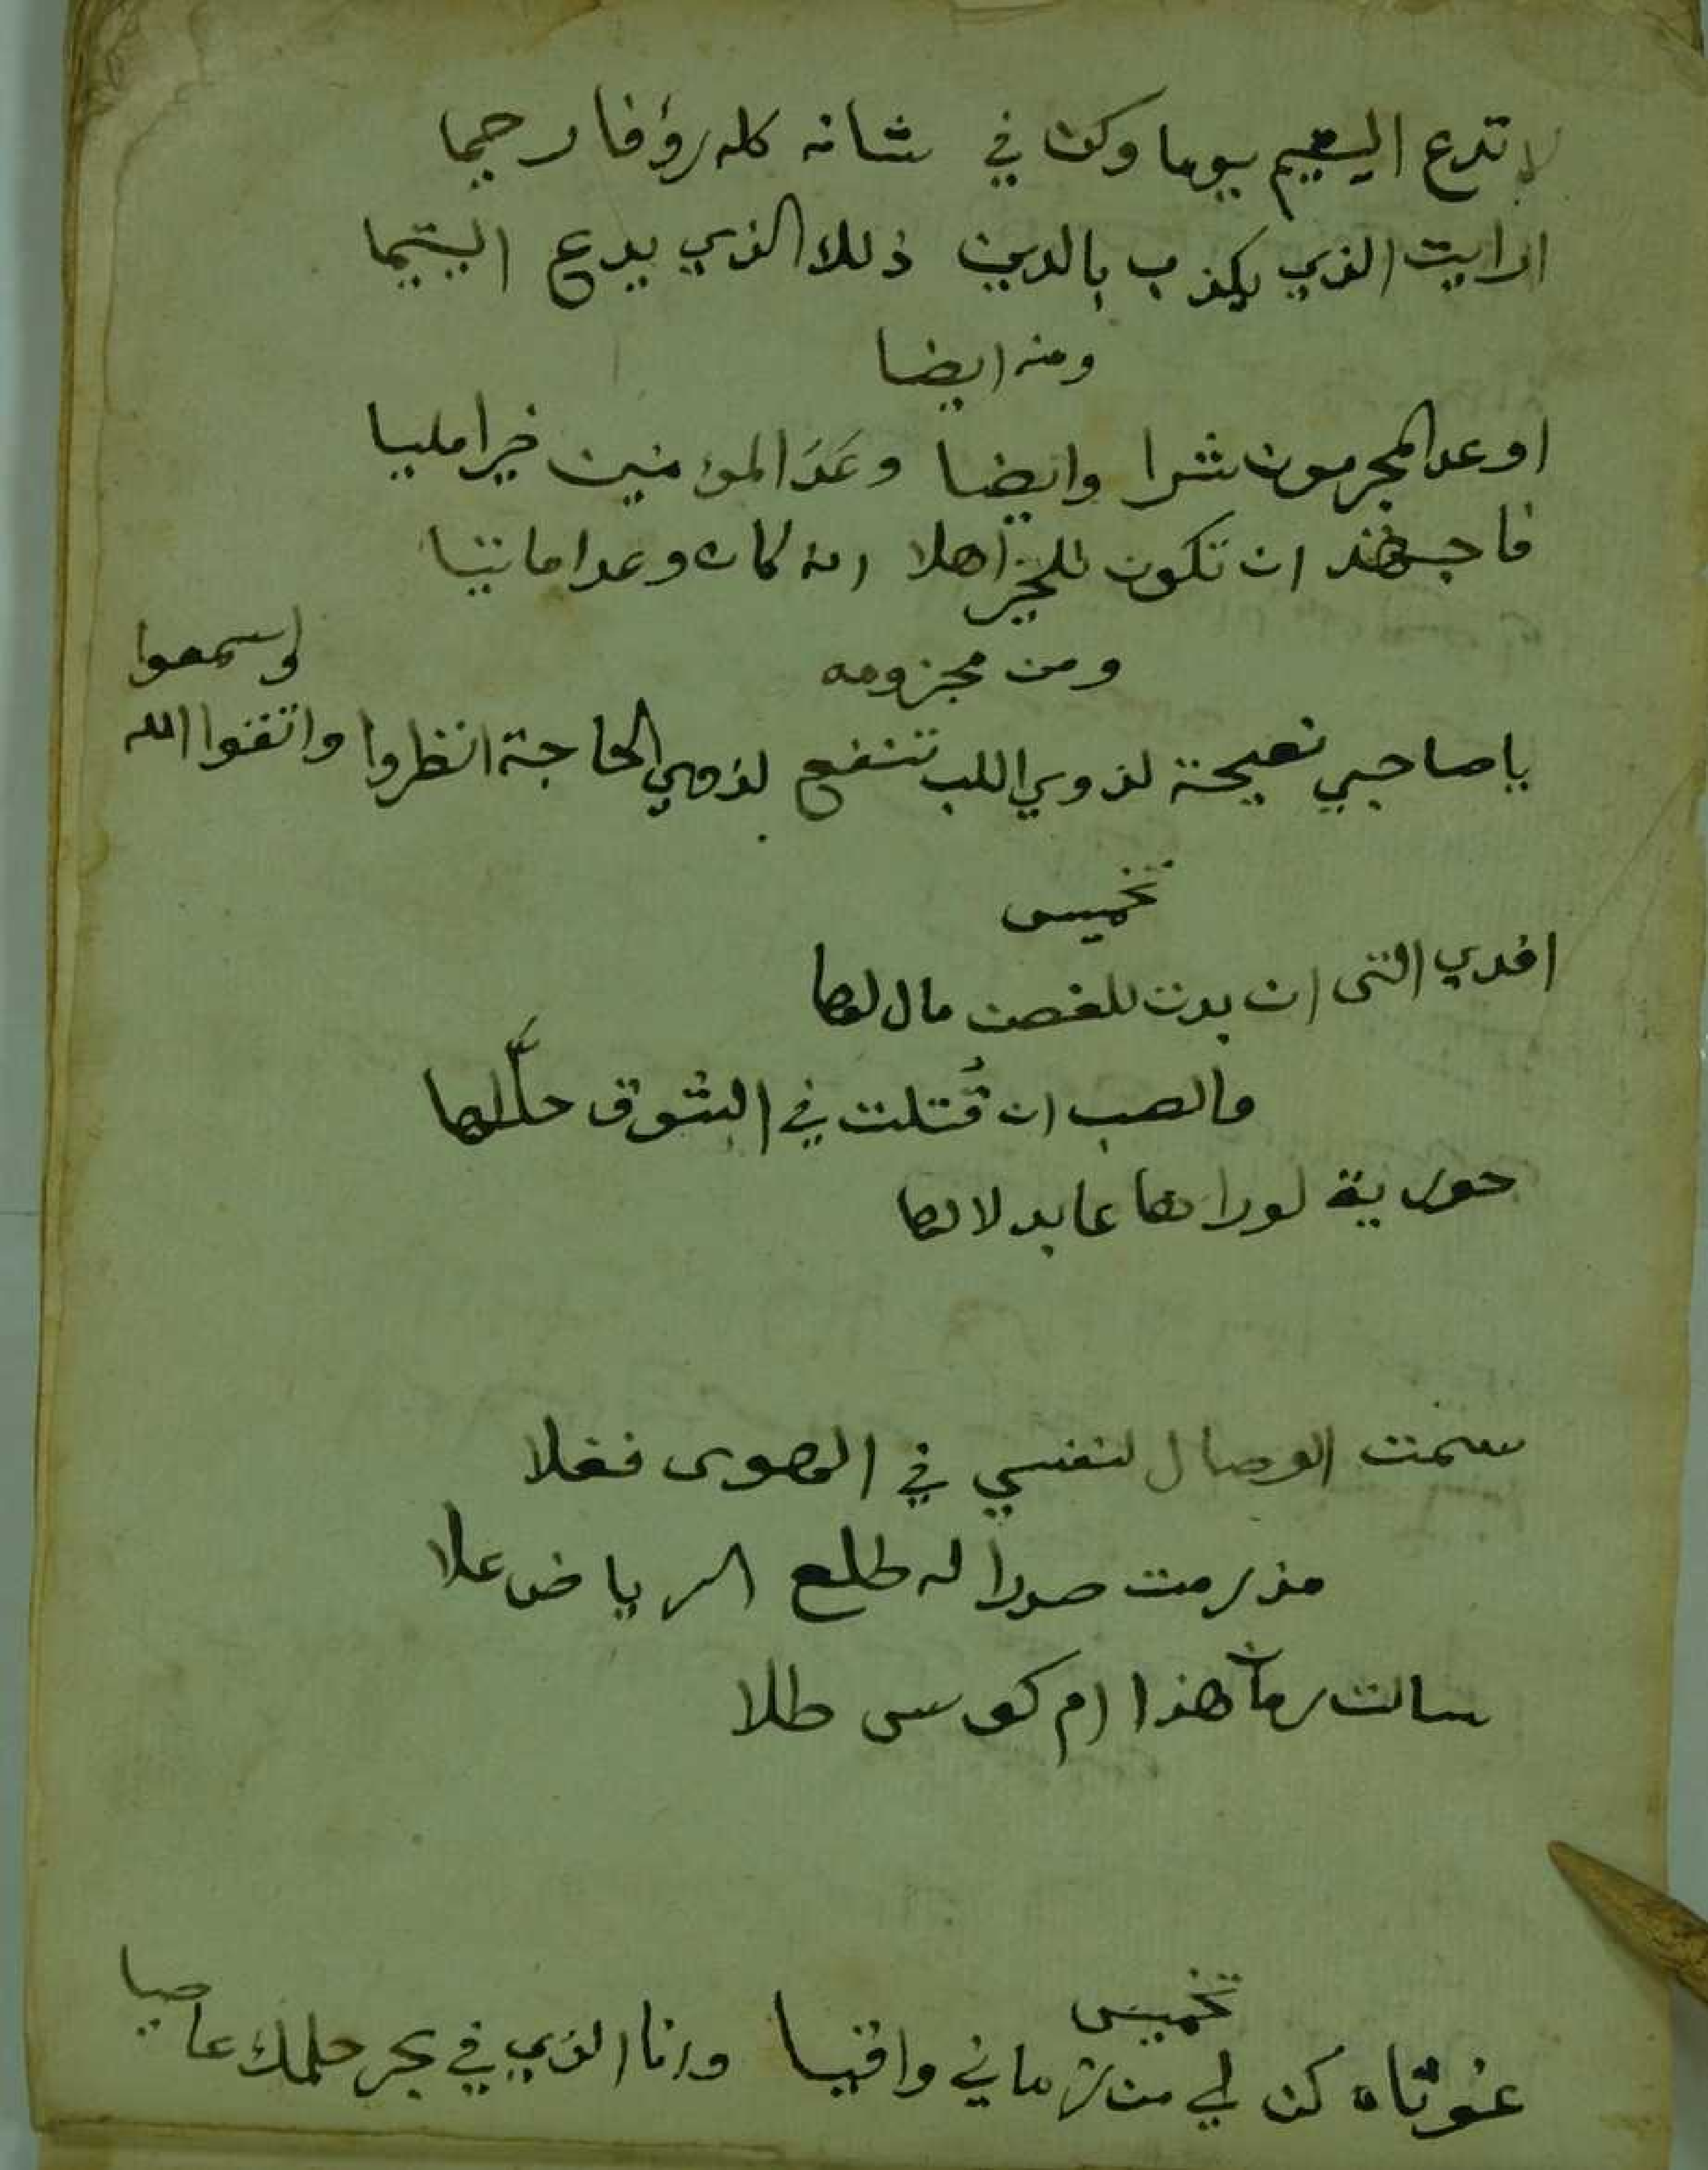 لا تدع اليتيم يوما وكن في شانه كله رؤفا رحيما
ارايت الذي يكذب بالدين ذلك الذي يدع اليتيما
ومنه ايضا
اوعد المجرمون شرا وايضا وَعَدَ المؤمنين خيرا مليا
فاجتهد ان تكون للخير اهلا انه كان وعدا ماتيا
ومن مجزومه
يا صاحبي نصيحة لذوي اللب تنفع لذوي الحاجة انظروا واتقوا الله
واسمعوا
تخميس
افدي التى ان بدت للغصن مال لها
والصب ان قُتلت في الشوق حلَّ لها
حورية لو راها عابد لالها
سمت الوصال لنفسي في الهوى فغلا
مذ رمت صدرا له طلع الرياض علا
سالت رمان هذا ام كوس طلا
تخميس
غوثاه كن لي من زماني واقيا وانا الذي في بحر حلمك عاصيا